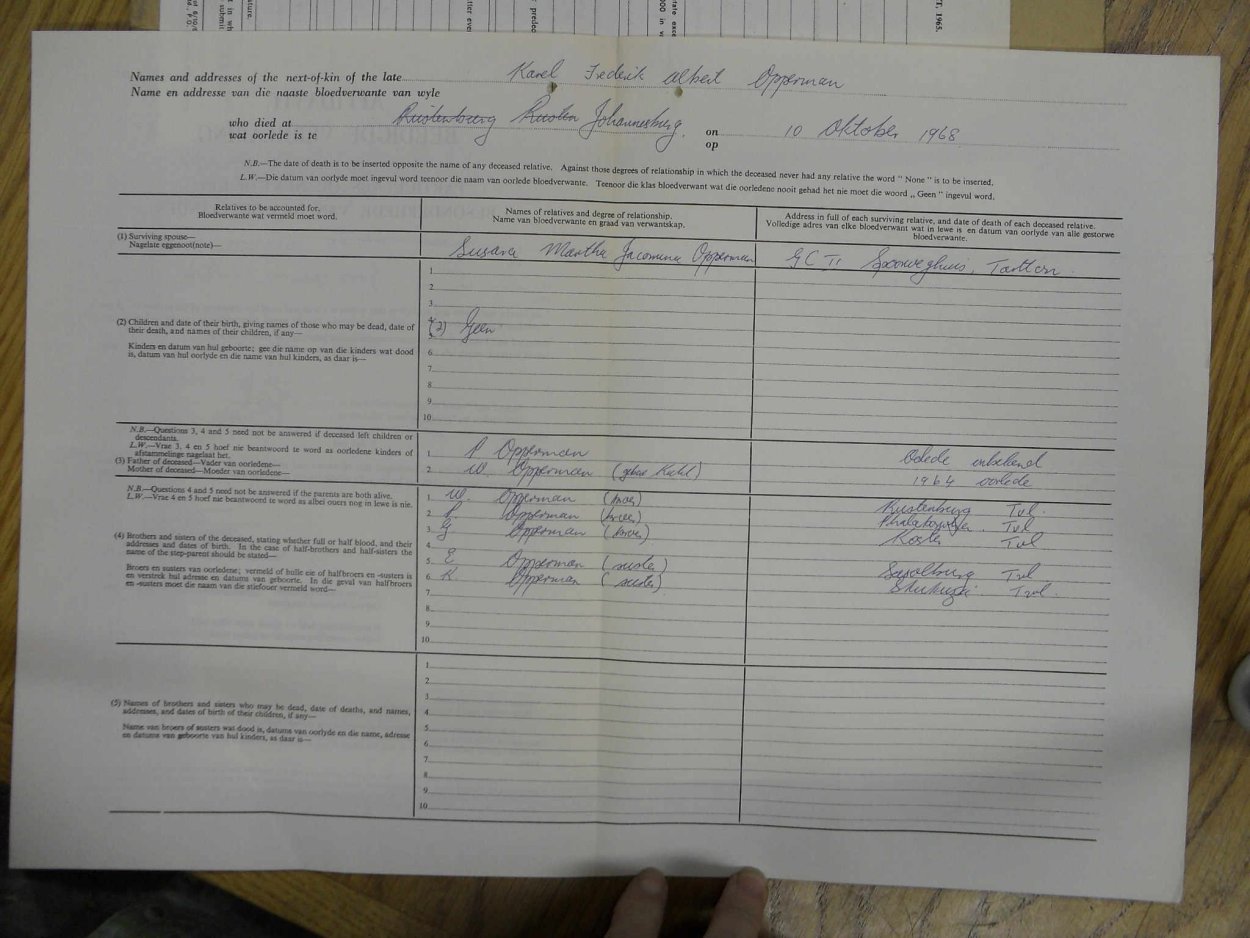 T. 1965.
Names and addresses of the next-of-kin of the late Karel Frederik Albert Opperman
Name en addresse van die naaste bloedverwante van wyle
who died at Rustenburg Rusten Johannesburg. on 10 Oktober 1968
wat oorlede is te op
N.B.—The date of death is to be inserted opposite the name of any deceased relative. Against those degrees of relationship in which the deceased never had any relative the word " None " is to be inserted.
L.W.—Die datum van oorlyde moet ingevul word teenoor die naam van oorlede bloedverwante. Teenoor die klas bloedverwant wat die oorledene nooit gehad het nie moet die woord „ Geen " ingevul word.
Relatives to be accounted for.
Bloedverwante wat vermeld moet word.
Names of relatives and degree of relationship.
Name van bloedverwante en graad van verwantskap.
Address in full of each surviving relative, and date of death of each deceased relative.
Volledige adres van elke bloedverwant wat in lewe is en datum van oorlyde van alle gestorwe
bloedverwante.
(1) Surviving spouse—
Nagelate eggenoot(note)—
Susara Martha Jacomina Opperman
Spoorweghuis,
(2) Children and date of their birth, giving names of those who may be dead, date of
their death, and names of their children, if any—
Kinders en datum van hul geboorte; gee die name op van die kinders wat dood
is, datum van hul oorlyde en die name van hul kinders, as daar is—
1
2
3
4
(2) Geen
5
6
7
8
9
10
N.B.—Questions 3, 4 and 5 need not be answered if deceased left children or
descendants.
L.W.—Vrae 3, 4 en 5 hoef nie beantwoord te word as oorledene kinders of
afstammelinge nagelaat het.
(3) Father of deceased—Vader van oorledene—
Mother of deceased—Moeder van oorledene—
1 P Opperman
2 W. Opperman (gebore
1964 oorlede
N.B.—Questions 4 and 5 need not be answered if the parents are both alive.
L.W.—Vrae 4 en 5 hoef nie beantwoord te word as albei ouers nog in lewe is nie.
(4) Brothers and sisters of the deceased, stating whether full or half blood, and their
addresses and dates of birth. In the case of half-brothers and half-sisters the
name of the step-parent should be stated—
Broers en susters van oorledene; vermeld of hulle eie of halfbroers en -susters is
en verstrek hul adresse en datums van geboorte. In die geval van halfbroers
en -susters moet die naam van die stiefouer vermeld word—
1 W. Opperman (broer) Rustenburg Tvl.
2 P Opperman (broer) Tvl
3 G Opperman (broer) Koster Tvl
4
5 E Opperman (suster) Sasolburg Tvl
6 K Opperman (suster) Skukuza Tvl.
7
8
9
10
(5) Names of brothers and sisters who may be dead, date of deaths, and names,
addresses, and dates of birth of their children, if any—
Name van broers of susters wat dood is, datums van oorlyde en die name, adresse
en datums van geboorte van hul kinders, as daar is—
1
2
3
4
5
6
7
8
9
10